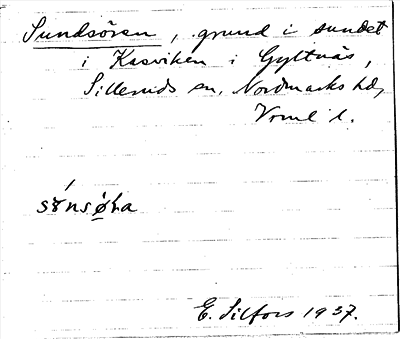 Sundsören, grund i sundet
i Kasviken i Gyltnäs,
Silleruds sn, Nordmarks hd,
Vrml l.
E. Silfors 1937.